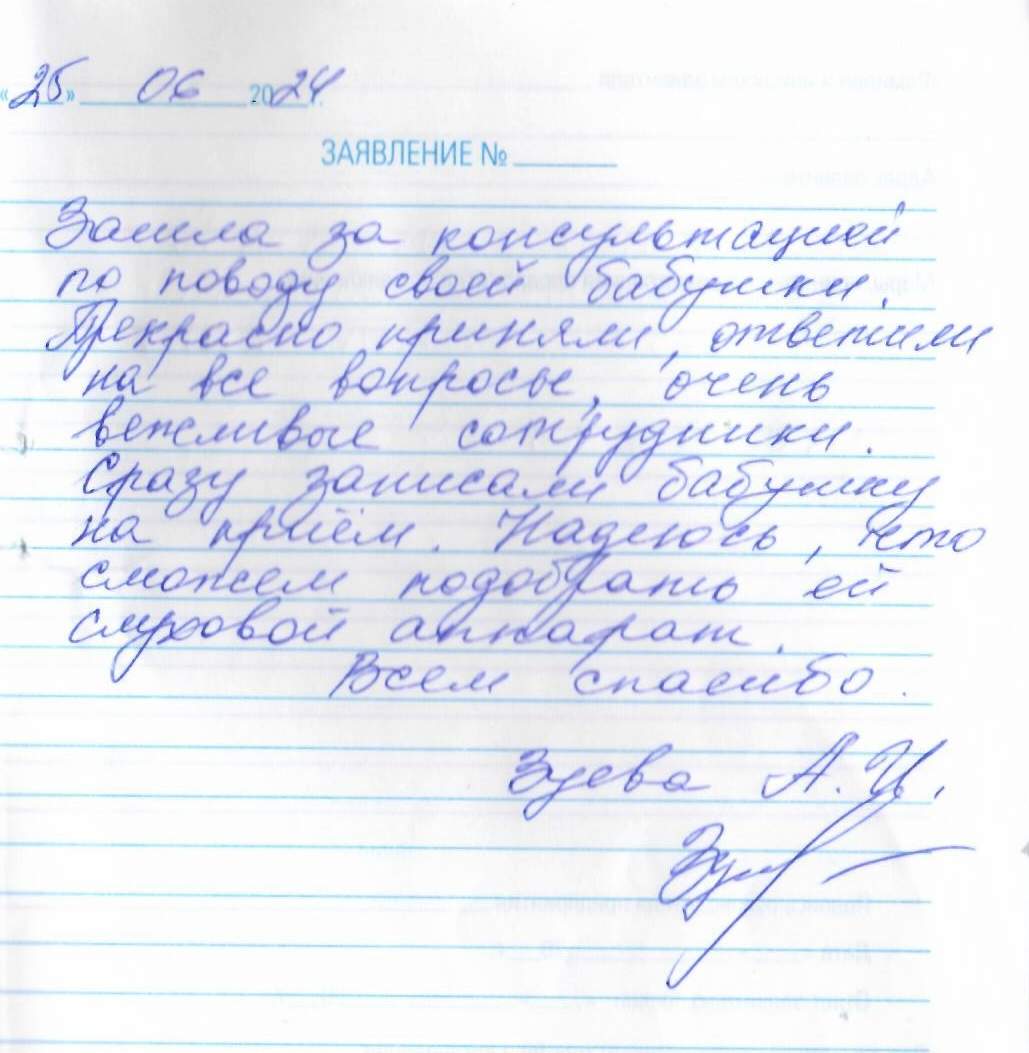 «25» 06 2024 г.
ЗАЯВЛЕНИЕ №
Зашла за консультацией
по поводу своей бабушки.
Прекрасно приняли, ответили
на все вопросы, очень
вежливые сотрудники.
Сразу записали бабушку
на приём. Надеюсь, что
сможем подобрать ей
слуховой аппарат.
Всем спасибо.
Зуева А.И.